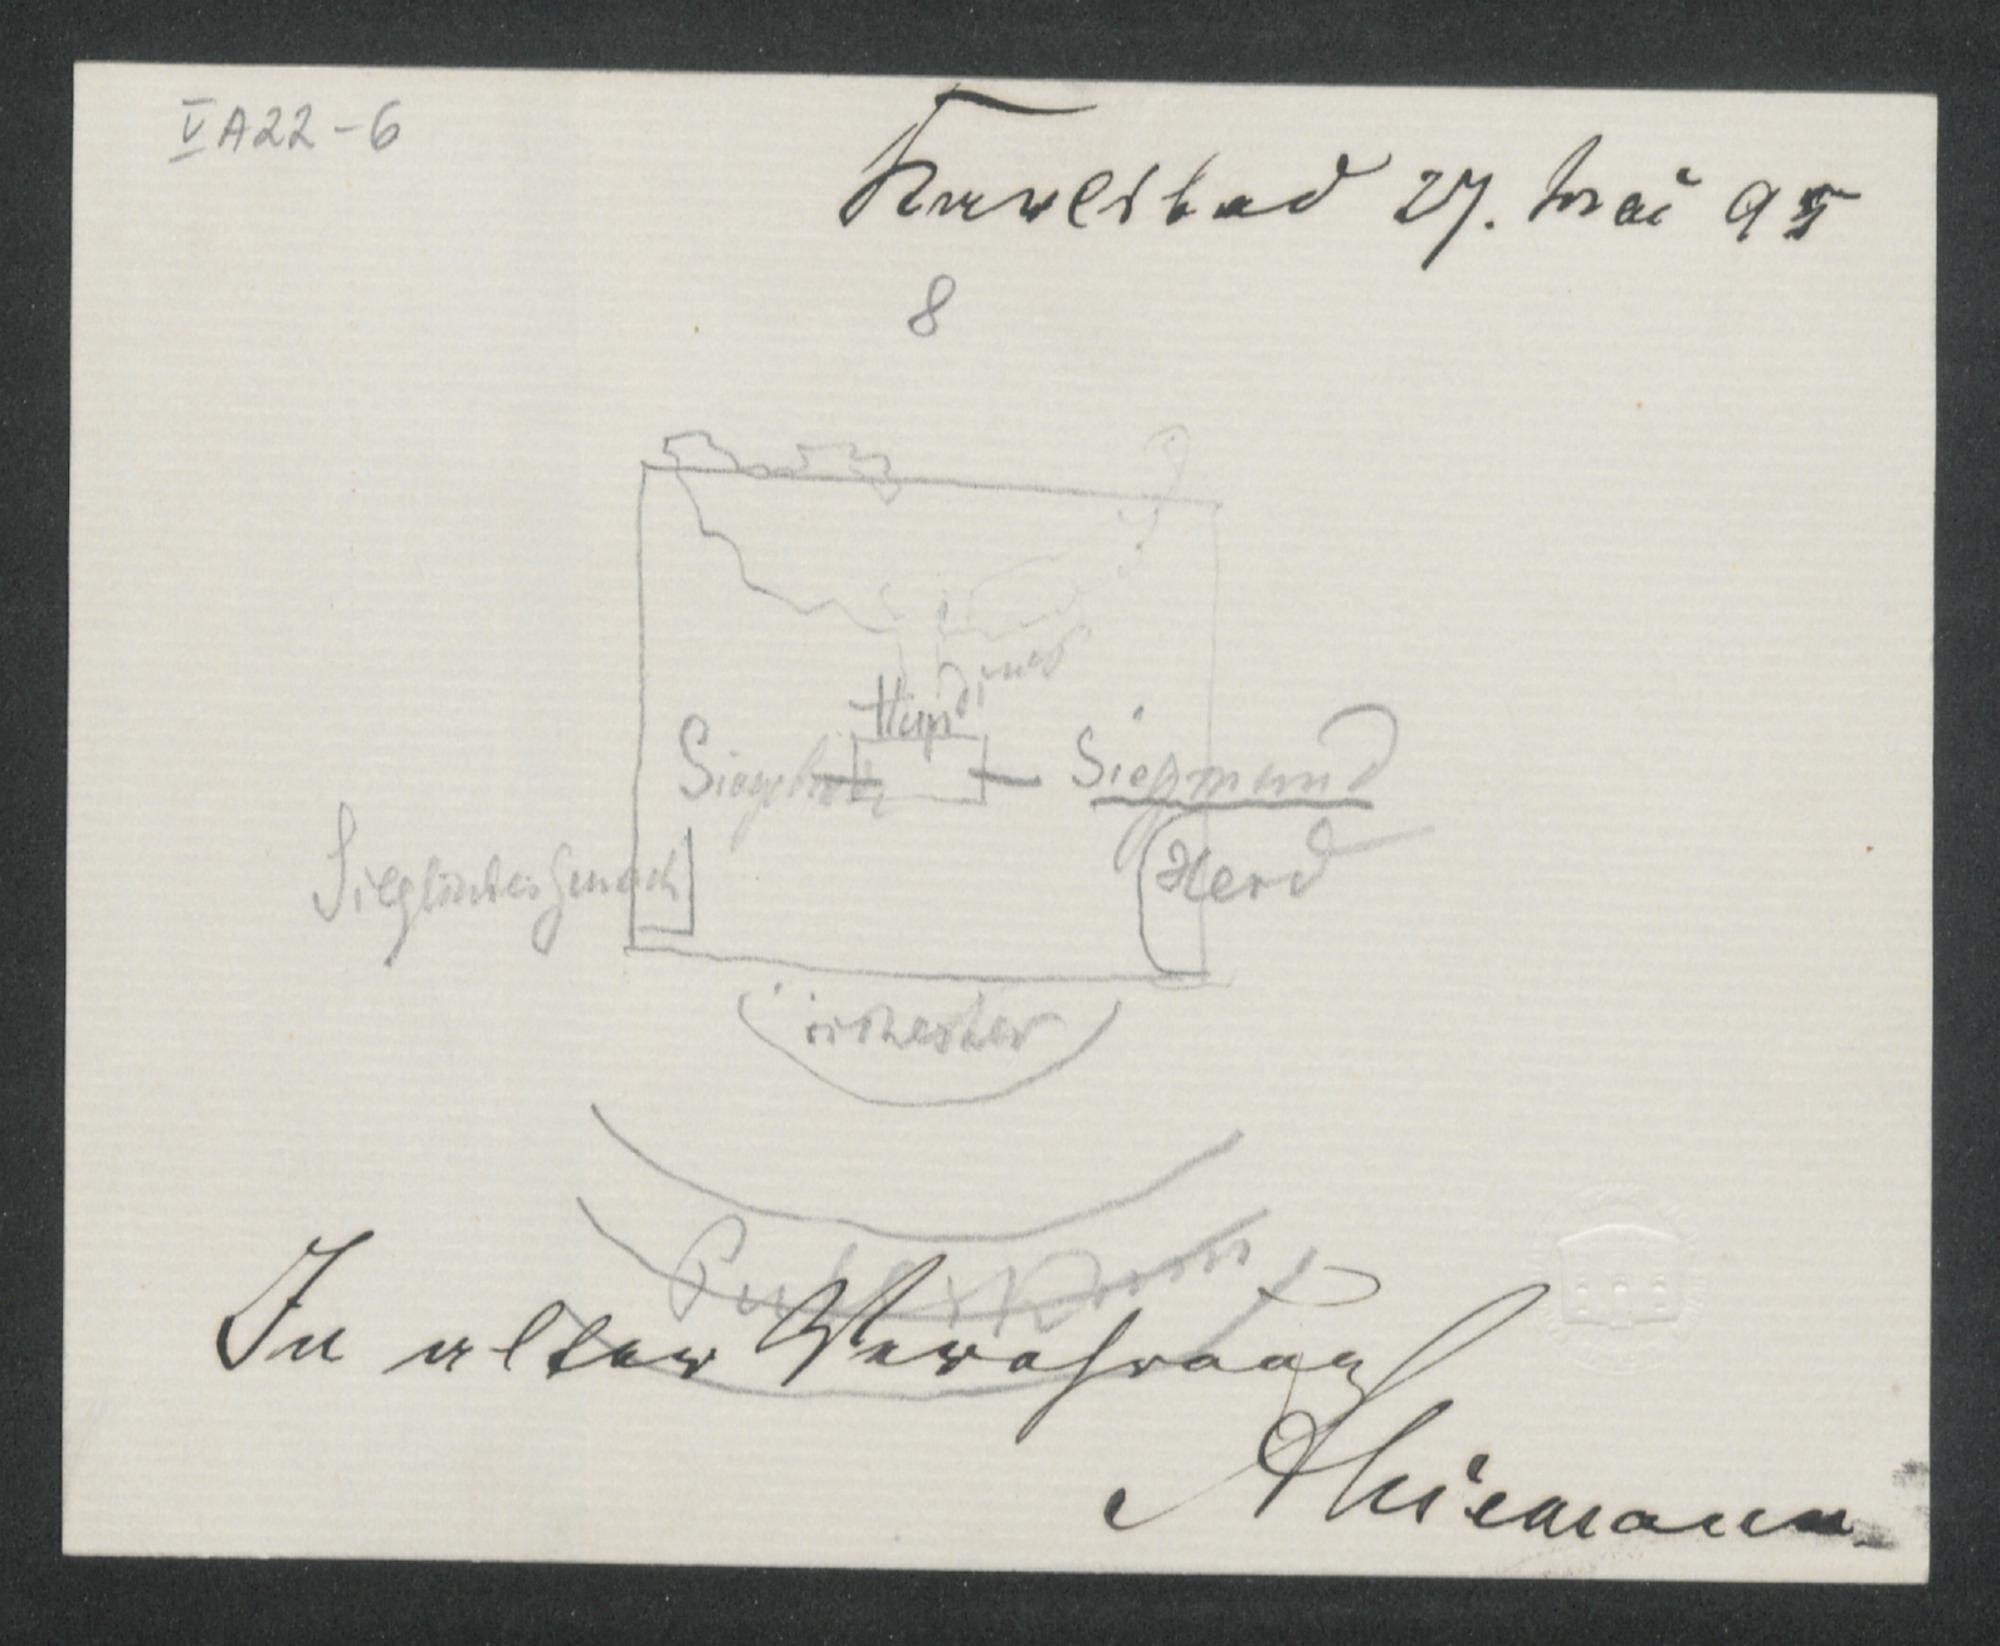 V A22-6
Karlsbad 27. Mai 95
8
Hundings
Siegmund
Sieglindes Gemach
Herd
Orchester
Publikum
In alter Verehrung
ANiemann